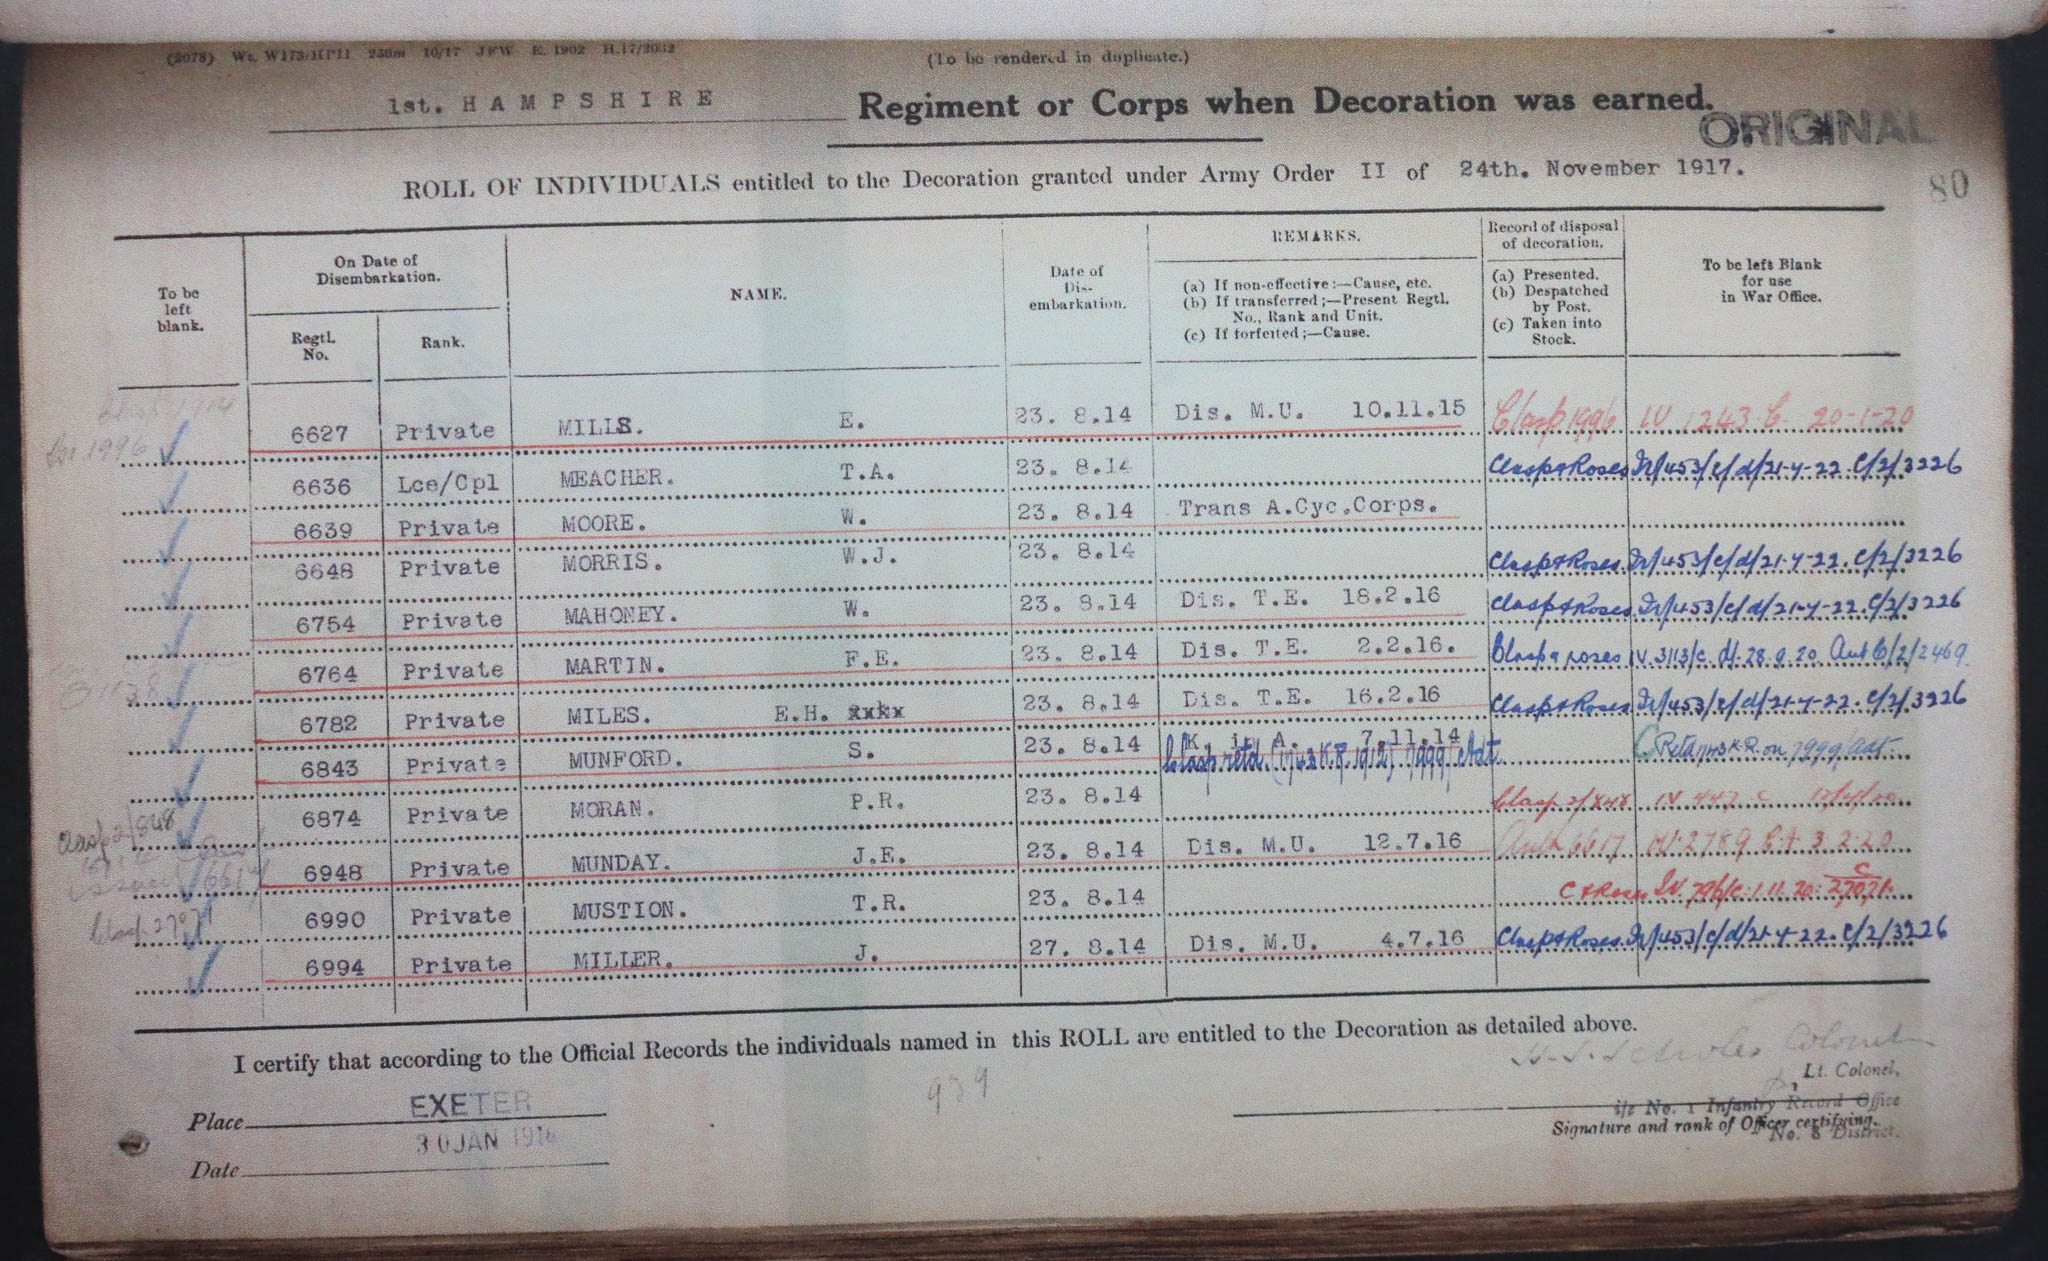 (2078) Wt. W173/HP11 250m 10/17 JFW E. 1902 H.17/2032
(To be rendered in duplicate.)
1st. HAMPSHIRE Regiment or Corps when Decoration was earned.
ORIGINAL
ROLL OF INDIVIDUALS entitled to the Decoration granted under Army Order II of 24th. November 1917.
80
To be left blank.
On Date of Disembarkation.
Regtl. No.
Rank.
NAME.
Date of Dis-embarkation.
REMARKS.
(a) If non-effective:—Cause, etc.
(b) If transferred;—Present Regtl. No., Rank and Unit.
(c) If forfeited;—Cause.
Record of disposal of decoration.
(a) Presented.
(b) Despatched by Post.
(c) Taken into Stock.
To be left Blank for use in War Office.
1996 6627 Private MILLS. E. 23. 8.14 Dis. M.U. 10.11.15 Clasp 1996 IV 1243 C. 20-1-20
6636 Lce/Cpl MEACHER. T.A. 23. 8.14 Clasp & Roses Iv/453/c/d/21-4-22. C/2/3226
6639 Private MOORE. W. 23. 8.14 Trans A.Cyc.Corps.
6648 Private MORRIS. W.J. 23. 8.14 Clasp & Roses Iv/453/c/d/21-4-22. C/2/3226
6754 Private MAHONEY. W. 23. 8.14 Dis. T.E. 18.2.16 Clasp & Roses Iv/453/c/d/21-4-22. C/2/3226
6764 Private MARTIN. F.E. 23. 8.14 Dis. T.E. 2.2.16. Clasp & roses IV. 3113/c. d/. 28.9.20 Aut C/2/2469
6782 Private MILES. E.H. xxkx 23. 8.14 Dis. T.E. 16.2.16 Clasp & Roses Iv/453/c/d/21-4-22. C/2/3226
6843 Private MUNFORD. S. 23. 8.14 K. in A. 7.11.14
Clasp retd. (1743 K.R. 1912) 7999/Adt Retd 1743 K.R. on 7999/Adt.
6874 Private MORAN. P.R. 23. 8.14 Clasp 2/848 IV 447 C
Clasp 2/848
6948 Private MUNDAY. J.E. 23. 8.14 Dis. M.U. 12.7.16 Auth 6617 IV 2789 3.2.20
6617
6990 Private MUSTION. T.R. 23. 8.14 C & Roses IV. 796/c. 1.11.20. C 27071.
Clasp 27071
6994 Private MILLER. J. 27. 8.14 Dis. M.U. 4.7.16 Clasp & Roses Iv/453/c/d/21-4-22. C/2/3226
I certify that according to the Official Records the individuals named in this ROLL are entitled to the Decoration as detailed above.
Colonel
939
Lt. Colonel,
Place EXETER
i/c No. 1 Infantry Record Office
Signature and rank of Officer certifying.
No. 8 District.
30 JAN
Date